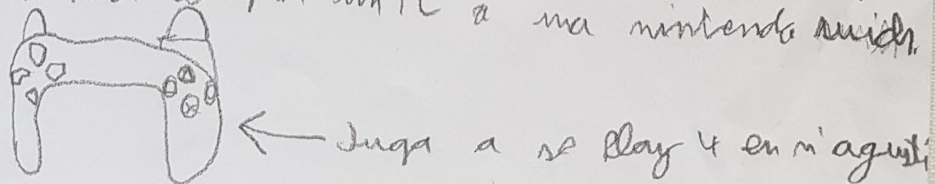 a ma nintendo suich.
Juga a se Play 4 en n'agustí